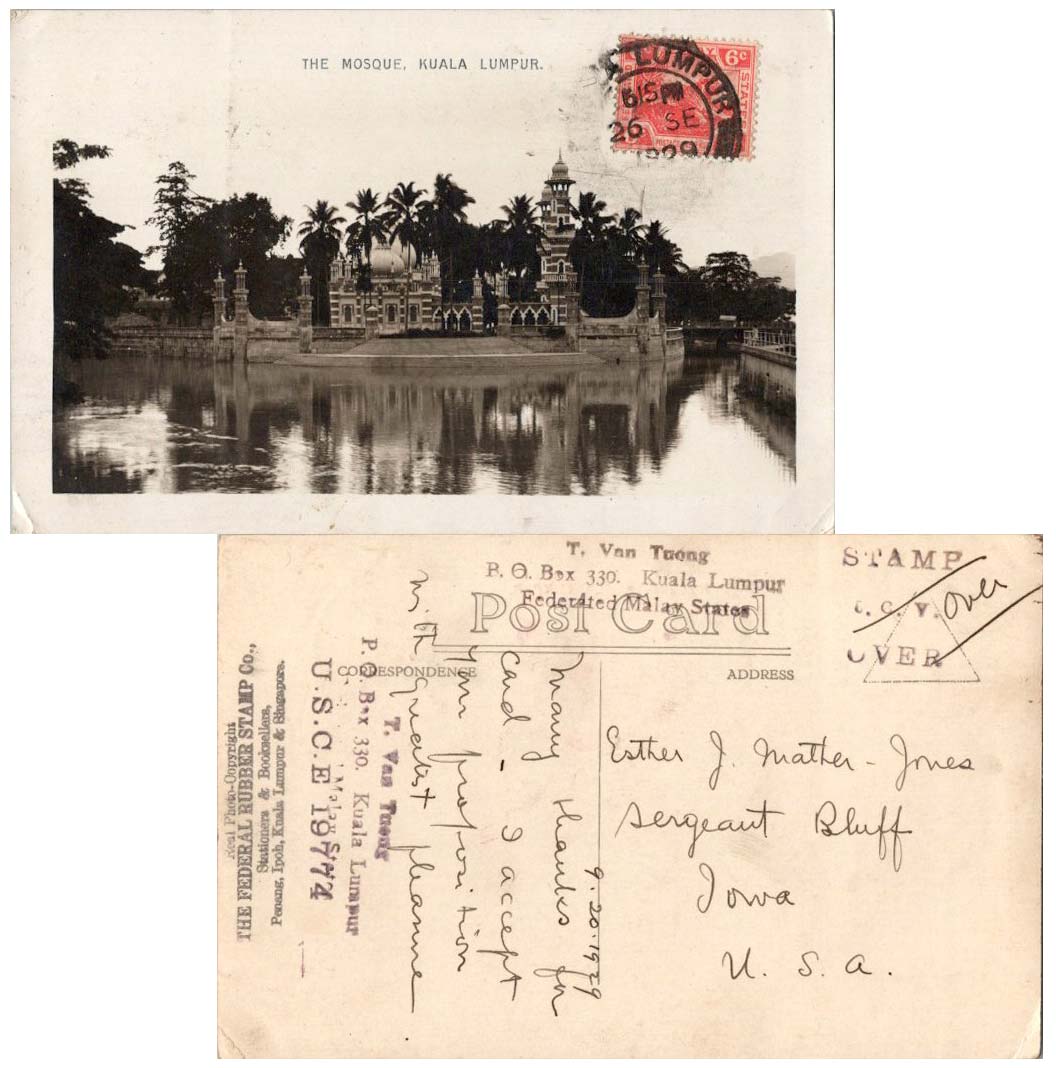 THE MOSQUE, KUALA LUMPUR.
6c
STATES
LUMPUR
615PM
26 SE
1929
T. Van Tuong
P. O. Box 330. Kuala Lumpur
Federated Malay States
Post Card
CORRESPONDENCE
ADDRESS
STAMP
T. C. V.
OVER
over
Esther J. Mather-Jones
Sergeant Bluff
Iowa
U. S. A.
9.20.1929
Many thanks for
card - I accept
your proposition
with greatest pleasure
T. Van Tuong
P. O. Box 330. Kuala Lumpur
Malay States
U.S.C.E 19774
Real Photo-Copyright
THE FEDERAL RUBBER STAMP Co.,
Stationers & Booksellers,
Penang, Ipoh, Kuala Lumpur & Singapore.